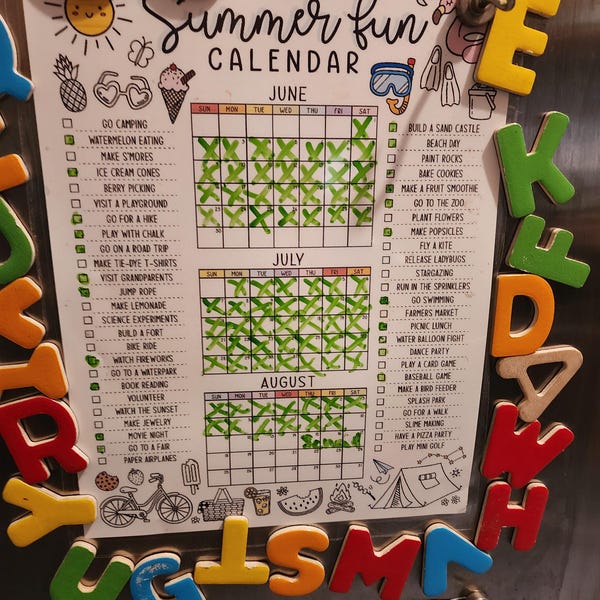 Summer fun
CALENDAR
JUNE
SUN MON TUE WED THU FRI SAT
GO CAMPING
WATERMELON EATING
MAKE S'MORES
ICE CREAM CONES
BERRY PICKING
VISIT A PLAYGROUND
GO FOR A HIKE
PLAY WITH CHALK
GO ON A ROAD TRIP
MAKE TIE-DYE T-SHIRTS
VISIT GRANDPARENTS
JUMP ROPE
MAKE LEMONADE
SCIENCE EXPERIMENTS
BUILD A FORT
BIKE RIDE
WATCH FIREWORKS
GO TO A WATERPARK
BOOK READING
VOLUNTEER
WATCH THE SUNSET
MAKE JEWELRY
MOVIE NIGHT
GO TO A FAIR
PAPER AIRPLANES
JULY
SUN MON TUE WED THU FRI SAT
AUGUST
SUN MON TUE WED THU FRI SAT
BUILD A SAND CASTLE
BEACH DAY
PAINT ROCKS
BAKE COOKIES
MAKE A FRUIT SMOOTHIE
GO TO THE ZOO
PLANT FLOWERS
MAKE POPSICLES
FLY A KITE
RELEASE LADYBUGS
STARGAZING
RUN IN THE SPRINKLERS
GO SWIMMING
FARMERS MARKET
PICNIC LUNCH
WATER BALLOON FIGHT
DANCE PARTY
PLAY A CARD GAME
BASEBALL GAME
MAKE A BIRD FEEDER
SPLASH PARK
GO FOR A WALK
SLIME MAKING
HAVE A PIZZA PARTY
PLAY MINI GOLF
E
K
F
D
A
W
H
R
Y
U
G
T
S
M